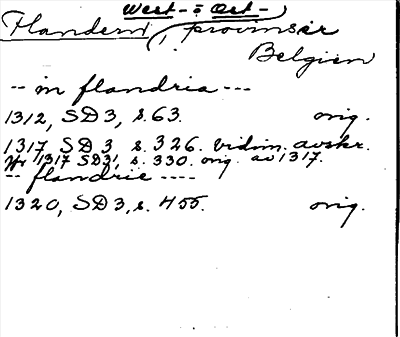 West- = Ost-
Flandern, provinser
Belgien
-- in flandria ---
1312, SD3, s. 63. orig.
1317 SD 3 s. 326. vidim. avskr.
1317 SD3, s. 330. orig. av 1317.
-- flandrie ----
1320, SD3, s. 455. orig.